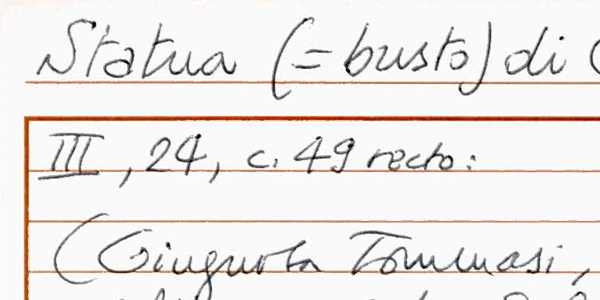 Statua (= busto) di
III, 24, c. 49 recto:
(Giugurta Tommasi,